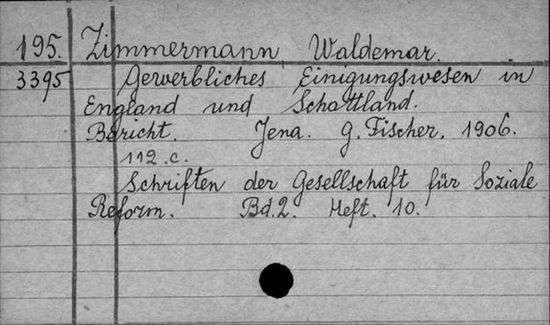 195. Zimmermann, Waldemar.
3395 Gewerbliches Einigungswesen in
England und Schottland.
Bericht. Jena. G. Fischer. 1906.
112.c.
Schriften der Gesellschaft für Soziale
Reform. Bd.2. Heft. 10.